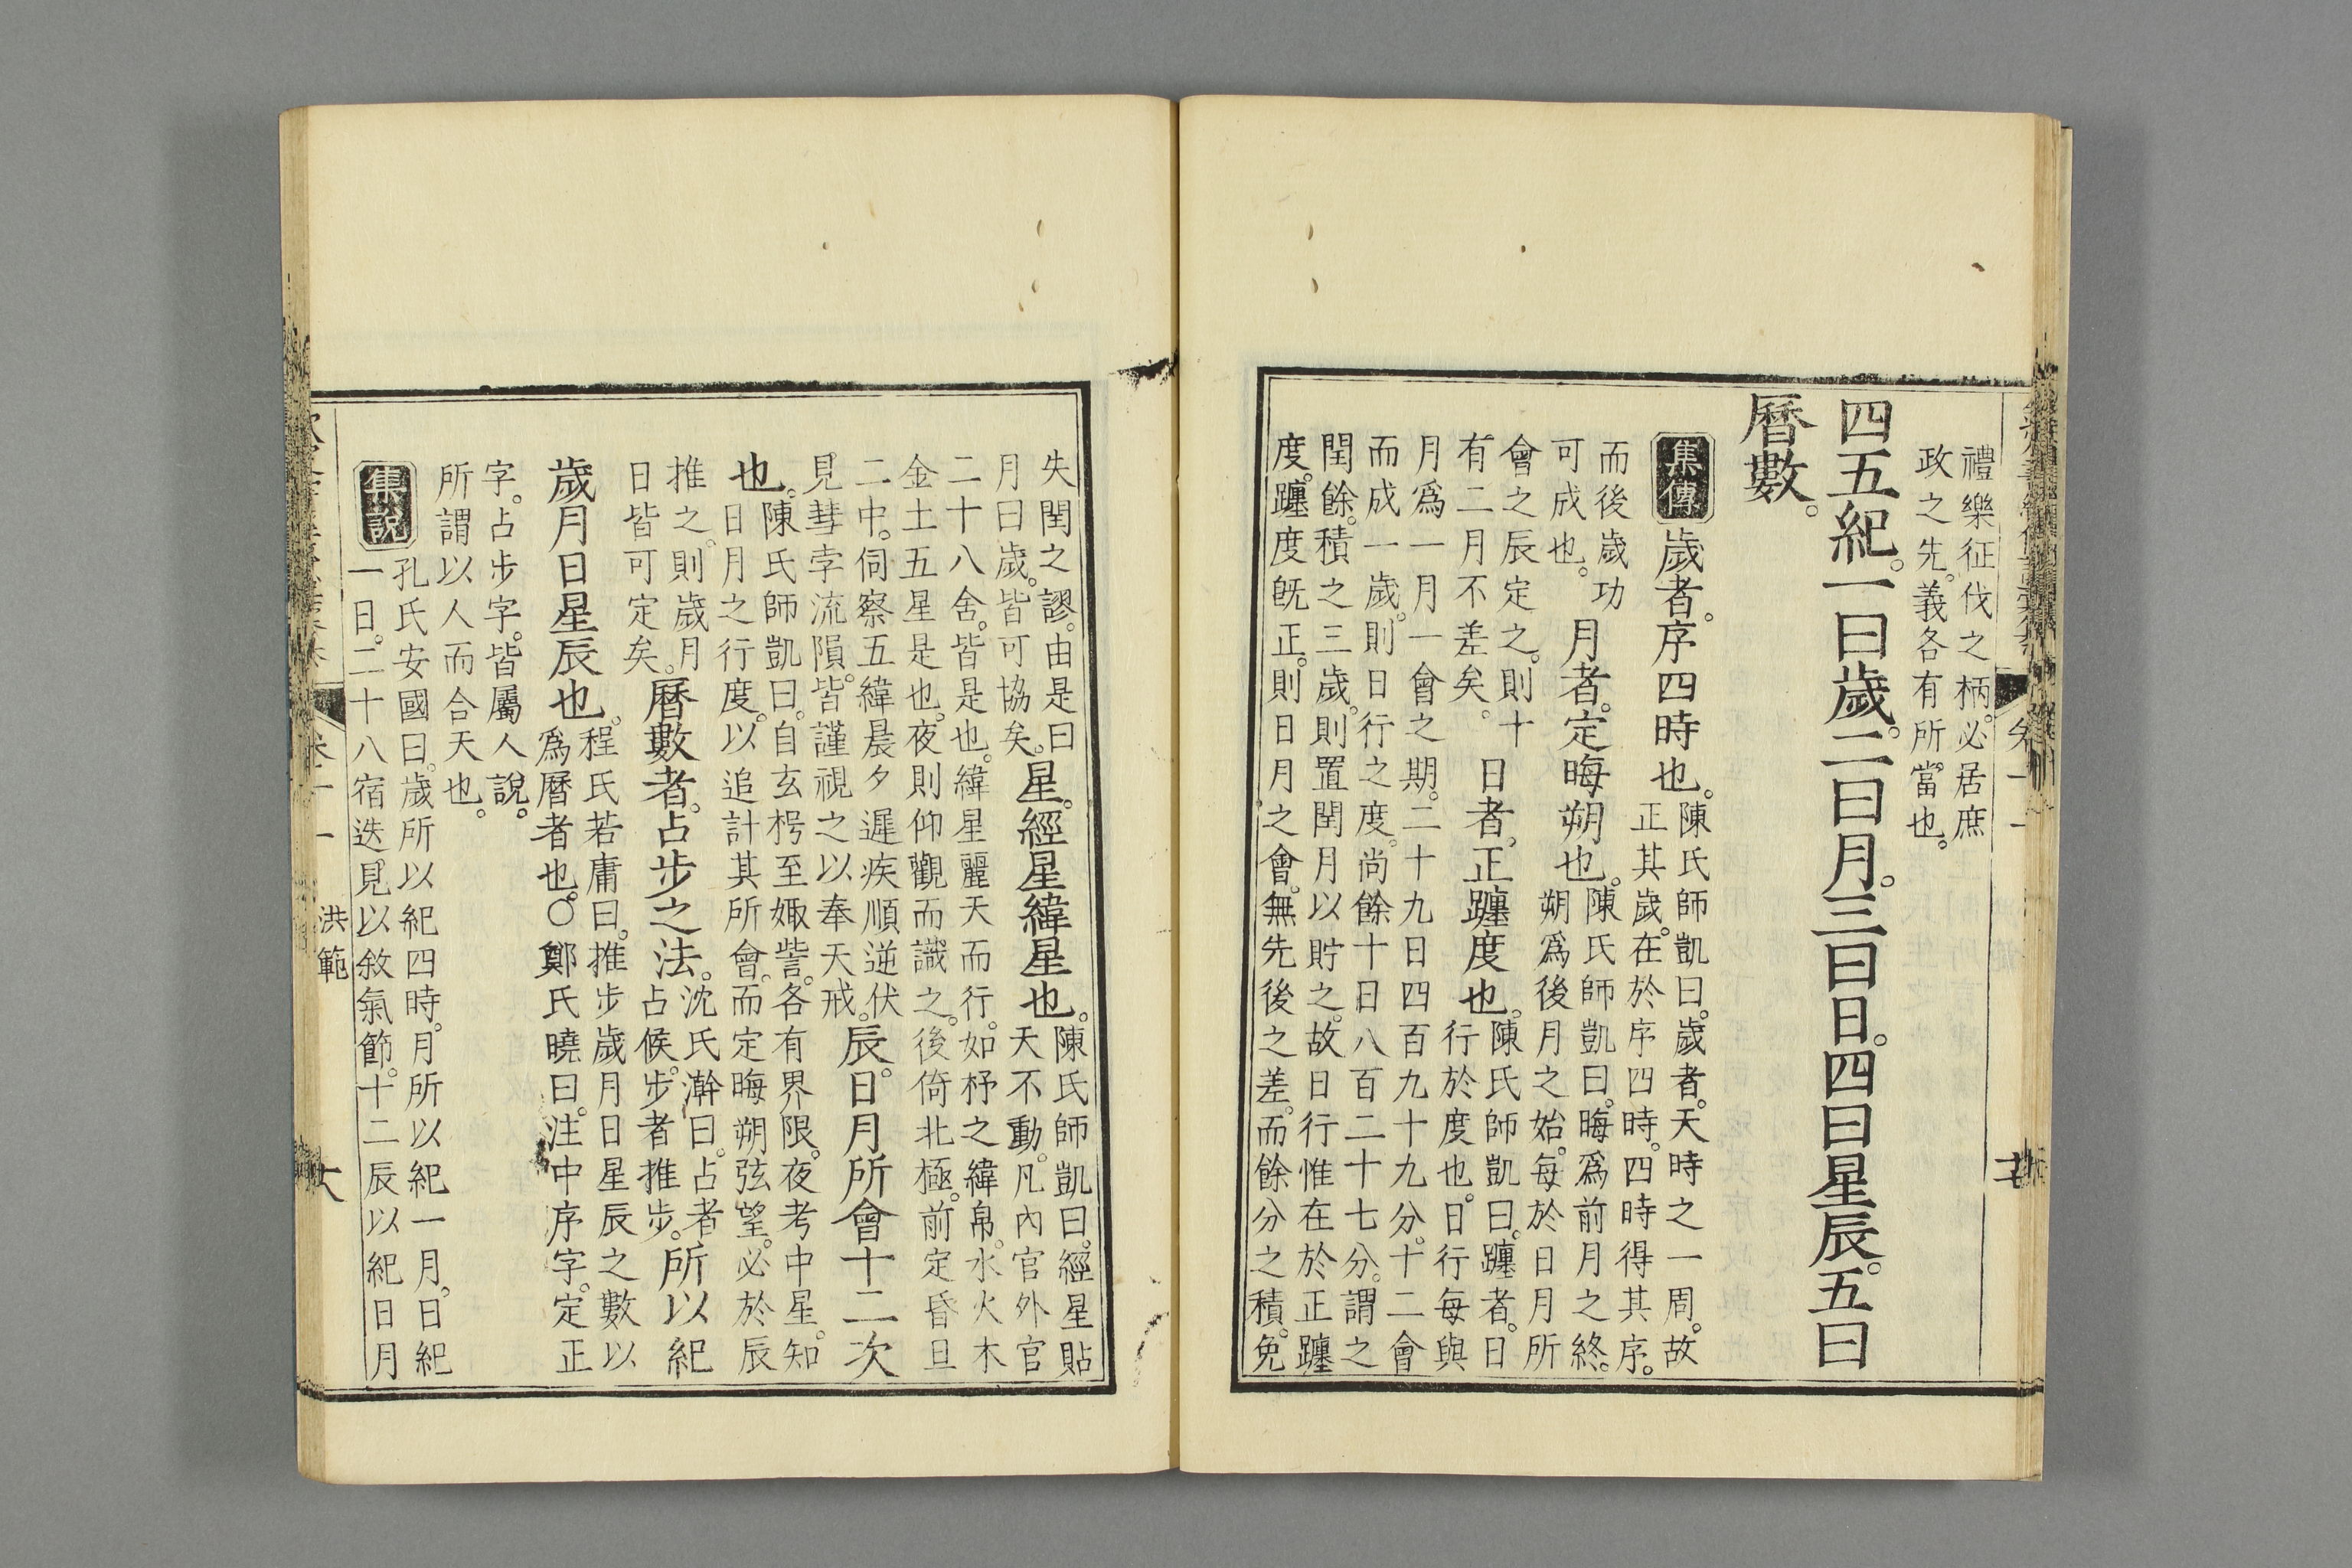 禮樂征伐之柄。必居庶
政之先。義各有所當也。
四五紀。一曰歲。二曰月。三曰日。四曰星辰。五曰
曆數。
集傳
歲者。序四時也。
陳氏師凱曰。歲者。天時之一周。故
正其歲。在於序四時。四時得其序。
而後歲功
可成也。
月者。定晦朔也。
陳氏師凱曰。晦爲前月之終。
朔爲後月之始。每於日月所
會之辰定之。則十
有二月不差矣。
日者。正躔度也。
陳氏師凱曰。躔者。日
行於度也。日行每與
月爲一月一會之期。二十九日四百九十九分。十二會
而成一歲。則日行之度。尚餘十日八百二十七分。謂之
閏餘。積之三歲。則置閏月以貯之。故日行惟在於正躔
度。躔度旣正。則日月之會。無先後之差。而餘分之積。免
失閏之謬。由是曰
月曰歲。皆可協矣。
星。經星緯星也。
陳氏師凱曰。經星貼
天不動。凡內官外官
二十八舍。皆是也。緯星麗天而行。如杼之緯帛。水火木
金土五星是也。夜則仰觀而識之。後倚北極。前定昏旦
二中。伺察五緯晨夕遲疾順逆伏
見彗孛流隕。皆謹視之以奉天戒。
辰。日月所會十二次
也。
陳氏師凱曰。自玄枵至娵訾。各有界限。夜考中星。知
日月之行度。以追計其所會。而定晦朔弦望。必於辰
推之。則歲月
日皆可定矣。
曆數者。占步之法。
沈氏澣曰。占者
占候。步者推步。
所以紀
歲月日星辰也。
程氏若庸曰。推步歲月日星辰之數以
爲曆者也。○鄭氏曉曰。注中序字。定正
字。占步字。皆屬人說。
所謂以人而合天也。
集說
孔氏安國曰。歲所以紀四時。月所以紀一月。日紀
一日。二十八宿迭見以敘氣節。十二辰以紀日月
洪範